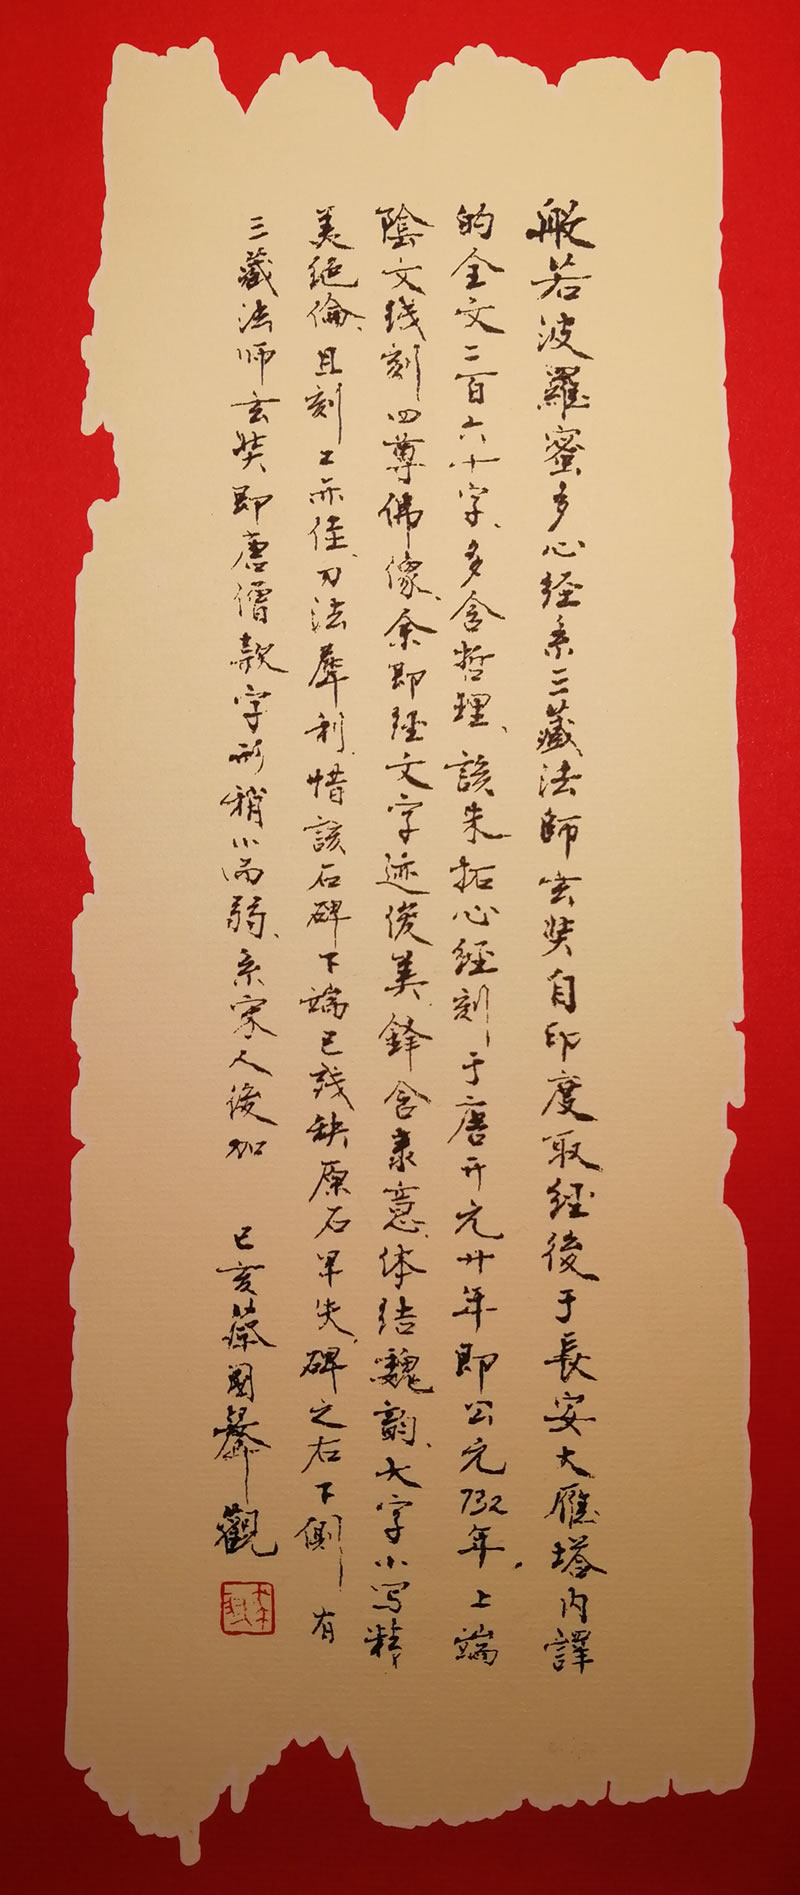 般若波羅蜜多心経系三藏法師玄奘自印度取経後于長安大雁塔内譯
的全文二百六十字、多含哲理、該朱拓心経刻于唐开元廿年即公元732年，上端
陰文线刻四尊佛像、余即経文字迹俊美、鋒含隶意、体结魏韵、大字小写精
美绝倫、且刻工亦佳、刀法犀利、惜該石碑下端已残缺原石早失、碑之右下侧有
三藏法师玄奘即唐僧款字形稍小而弱、系宋人後加 己亥蔡國聲觀